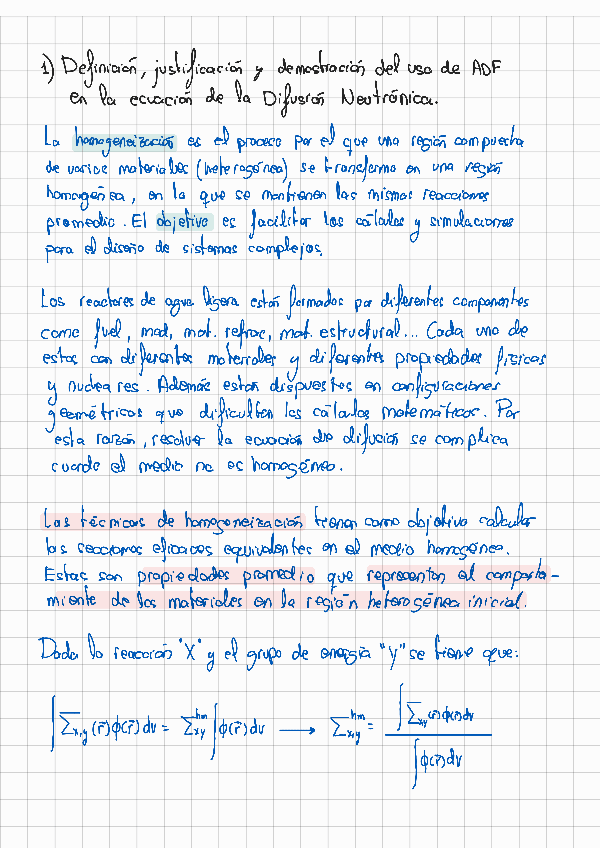 1) Definición, justificación y demostración del uso de ADF
en la ecuación de la Difusión Neutrónica.
La homogeneización es el proceso por el que una región compuesta
de varios materiales (heterogénea) se transforma en una región
homogénea, en la que se mantienen las mismas reacciones
promedio. El objetivo es facilitar los cálculos y simulaciones
para el diseño de sistemas complejos.
Los reactores de agua ligera están formados por diferentes componentes
como fuel, mod, mat. refrac, mat. estructural... Cada uno de
estos con diferentes materiales y diferentes propiedades físicas
y nucleares. Además están dispuestos en configuraciones
geométricas que dificultan los cálculos matemáticos. Por
esta razón, resolver la ecuación de difusión se complica
cuando el medio no es homogéneo.
Las técnicas de homogeneización tienen como objetivo calcular
las secciones eficaces equivalentes en el medio homogéneo.
Estas son propiedades promedio que representan el comporta-
miento de los materiales en la región heterogénea inicial.
Dada la reacción "X" y el grupo de energía "Y" se tiene que:
∫ Σx,y (r⃗) ϕ(r⃗) dv = Σxy^hm ∫ ϕ(r⃗) dv ⟶ Σx,y^hm = ∫ Σx,y (r⃗) ϕ(r⃗) dv / ∫ ϕ(r⃗) dv